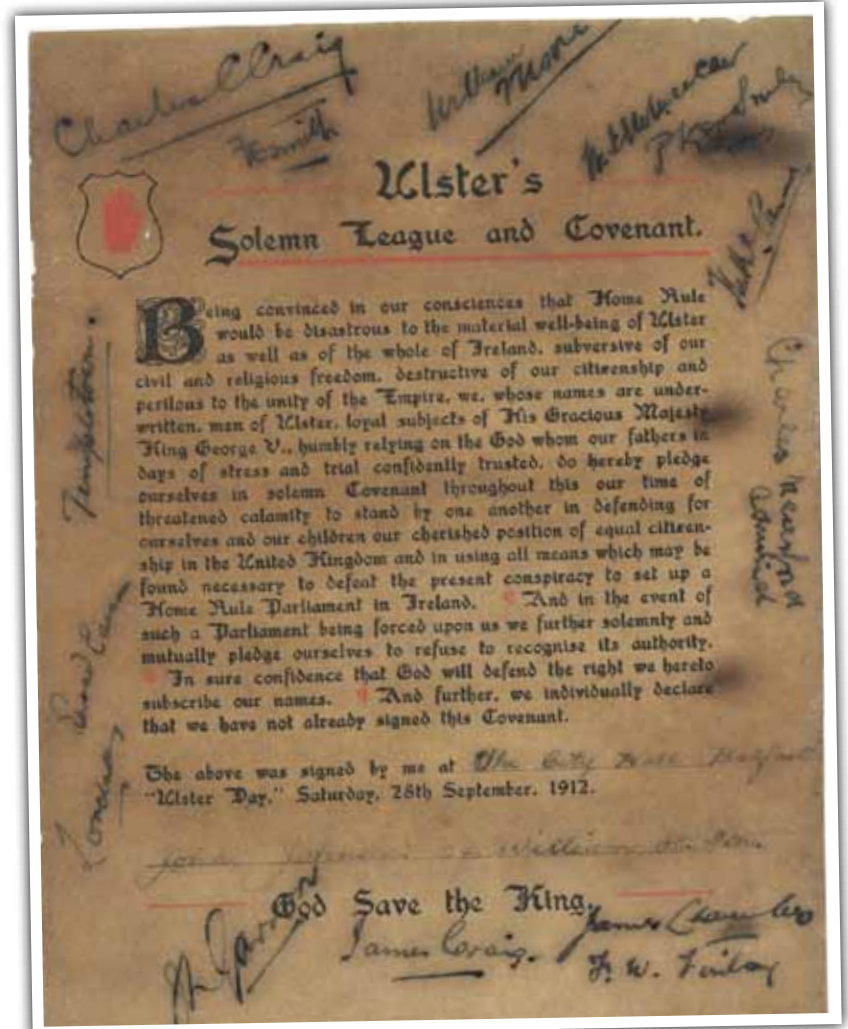 Charles C Craig
William Moore
FE Smith
Ulster's
Solemn League and Covenant.
Being convinced in our consciences that Home Rule
would be disastrous to the material well-being of Ulster
as well as of the whole of Ireland, subversive of our
civil and religious freedom, destructive of our citizenship and
perilous to the unity of the Empire, we, whose names are under-
written, men of Ulster, loyal subjects of His Gracious Majesty
King George V., humbly relying on the God whom our fathers in
days of stress and trial confidently trusted, do hereby pledge
ourselves in solemn Covenant throughout this our time of
threatened calamity to stand by one another in defending for
ourselves and our children our cherished position of equal citizen-
ship in the United Kingdom and in using all means which may be
found necessary to defeat the present conspiracy to set up a
Home Rule Parliament in Ireland. ¶ And in the event of
such a Parliament being forced upon us we further solemnly and
mutually pledge ourselves to refuse to recognise its authority.
¶ In sure confidence that God will defend the right we hereto
subscribe our names. ¶ And further, we individually declare
that we have not already signed this Covenant.
Templetown.
Londonderry
Charles
Admiral
The above was signed by me at The City Hall Belfast
"Ulster Day," Saturday, 28th September, 1912.
John William
God Save the King.
James Craig.
James Chambers
F. W. Finlay